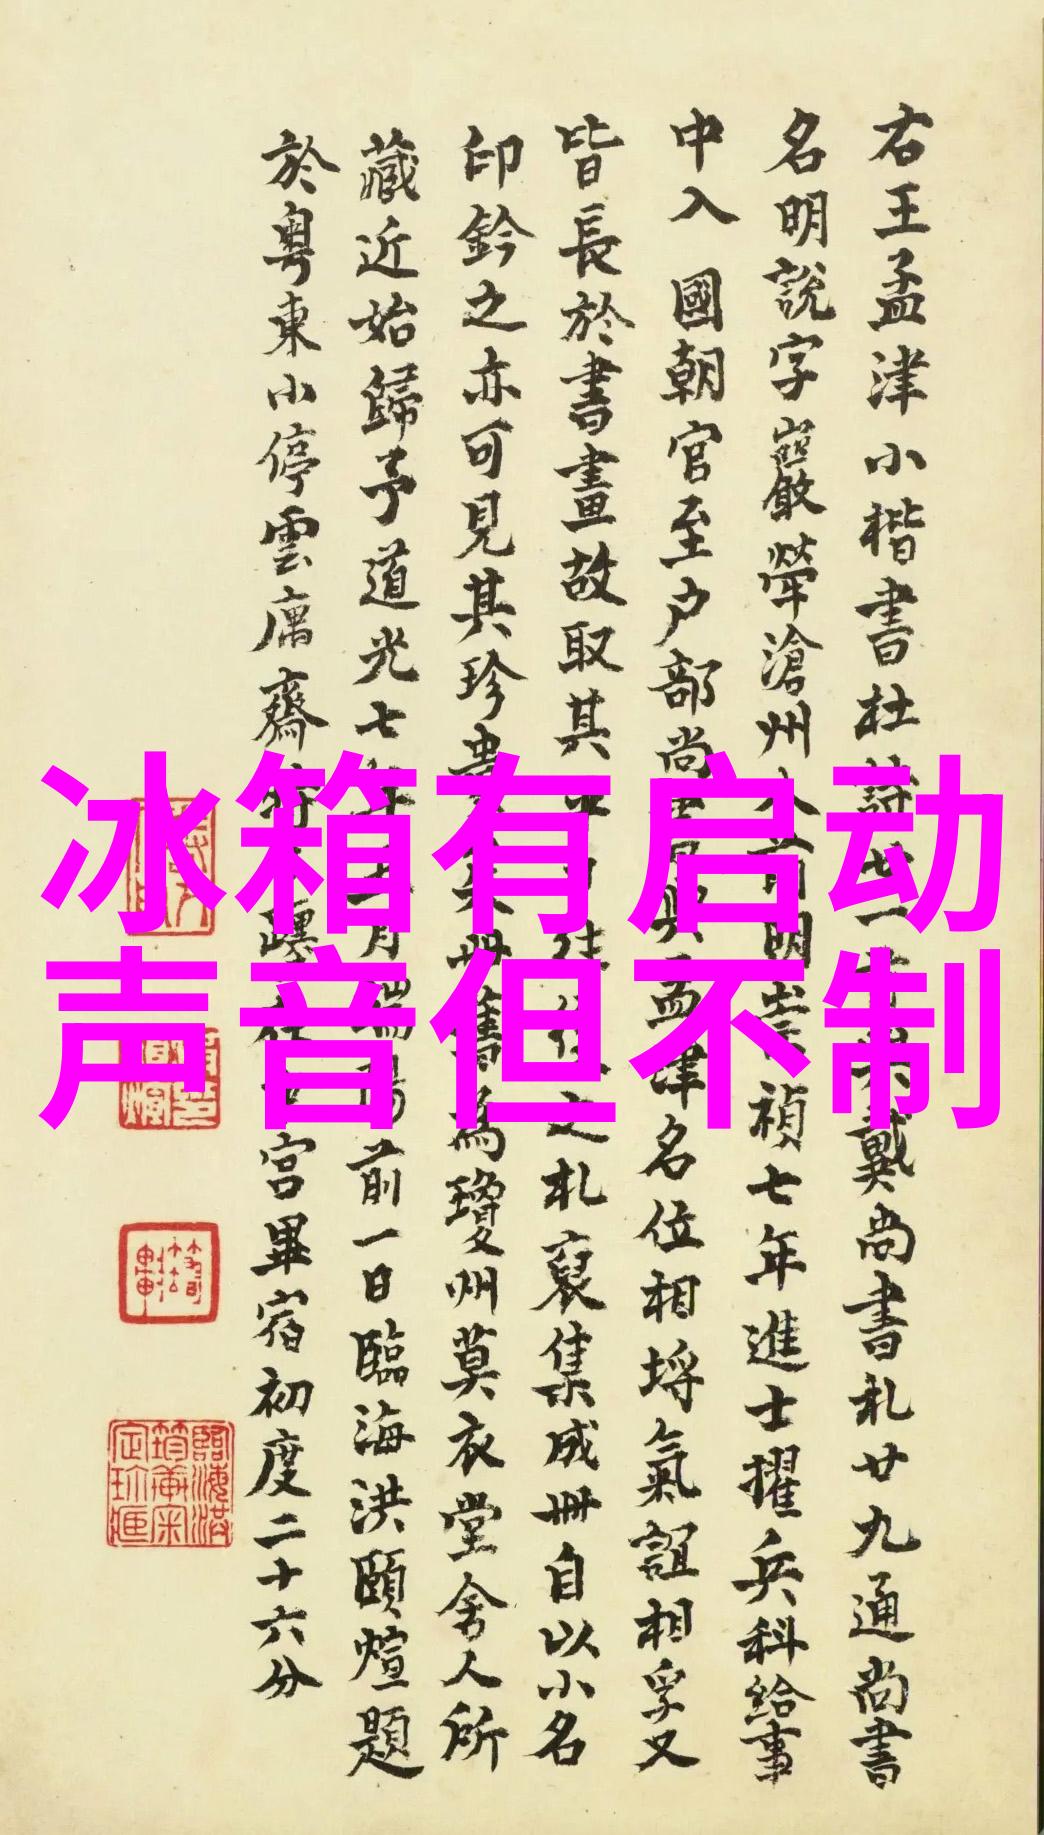 冰箱有启动
声音但不制
右王孟津小楷書杜詩廿一首
戴尚書札廿九通尚書
名明說字巖犖滄州人前明崇禎七年進士擢兵科給事
中入國朝官至户部尚書與孟津名位相埒氣誼相孚又
皆長於書畫故取其平日往復之札裒集成冊自以小名
印鈐之亦可見其珍
冊舊為瓊州莫衣堂舍人所
藏近始歸予道光七年
月
陽前一日臨海洪頤煊題
於粵東小停雲庽齋時
躔在
宮畢宿初度二十六分